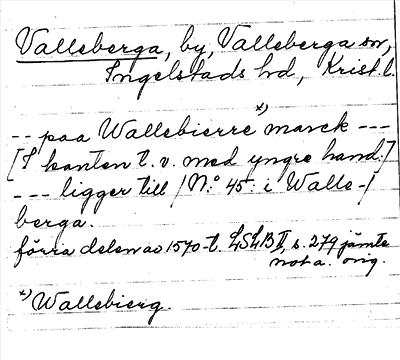 Valleberga, by, Valleberga sn,
Ingelstads hd, Krist. l.
-- paa Wallebierre x) marck ---
[I kanten t. v. med yngre hand:]
--- ligger till /N:o 45: i Walle-/
berga.
förra delen av 1570-t. LSLB II, s. 279 jämte
not a. orig.
x) Wallebierg.